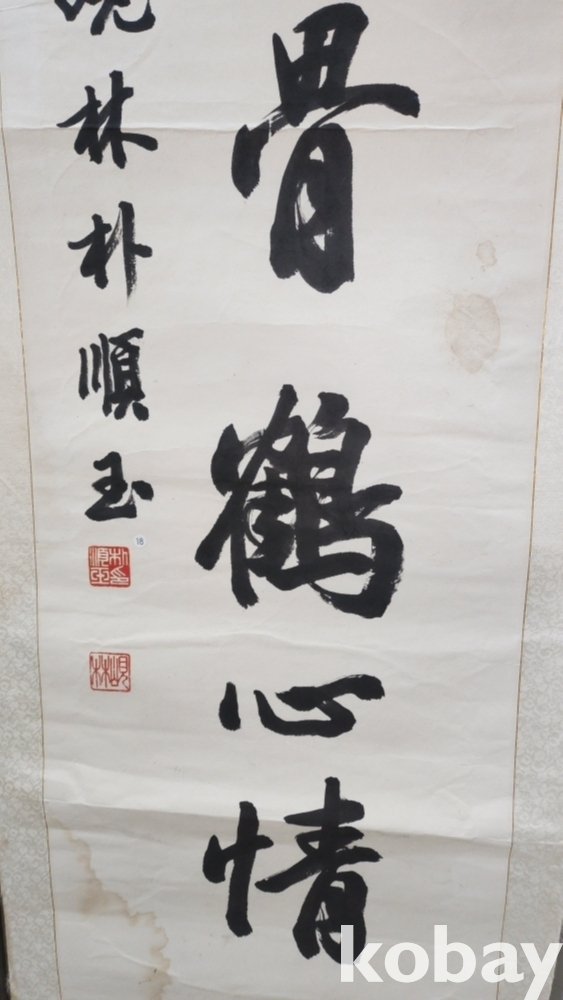 骨鶴心情
林朴順玉
18
kobay